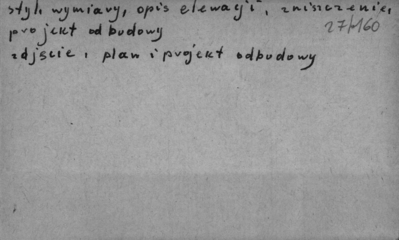 styl, wymiary, opis elewacji, zniszczenie,
projekt odbudowy
27/160
zdjęcie, plan i projekt odbudowy